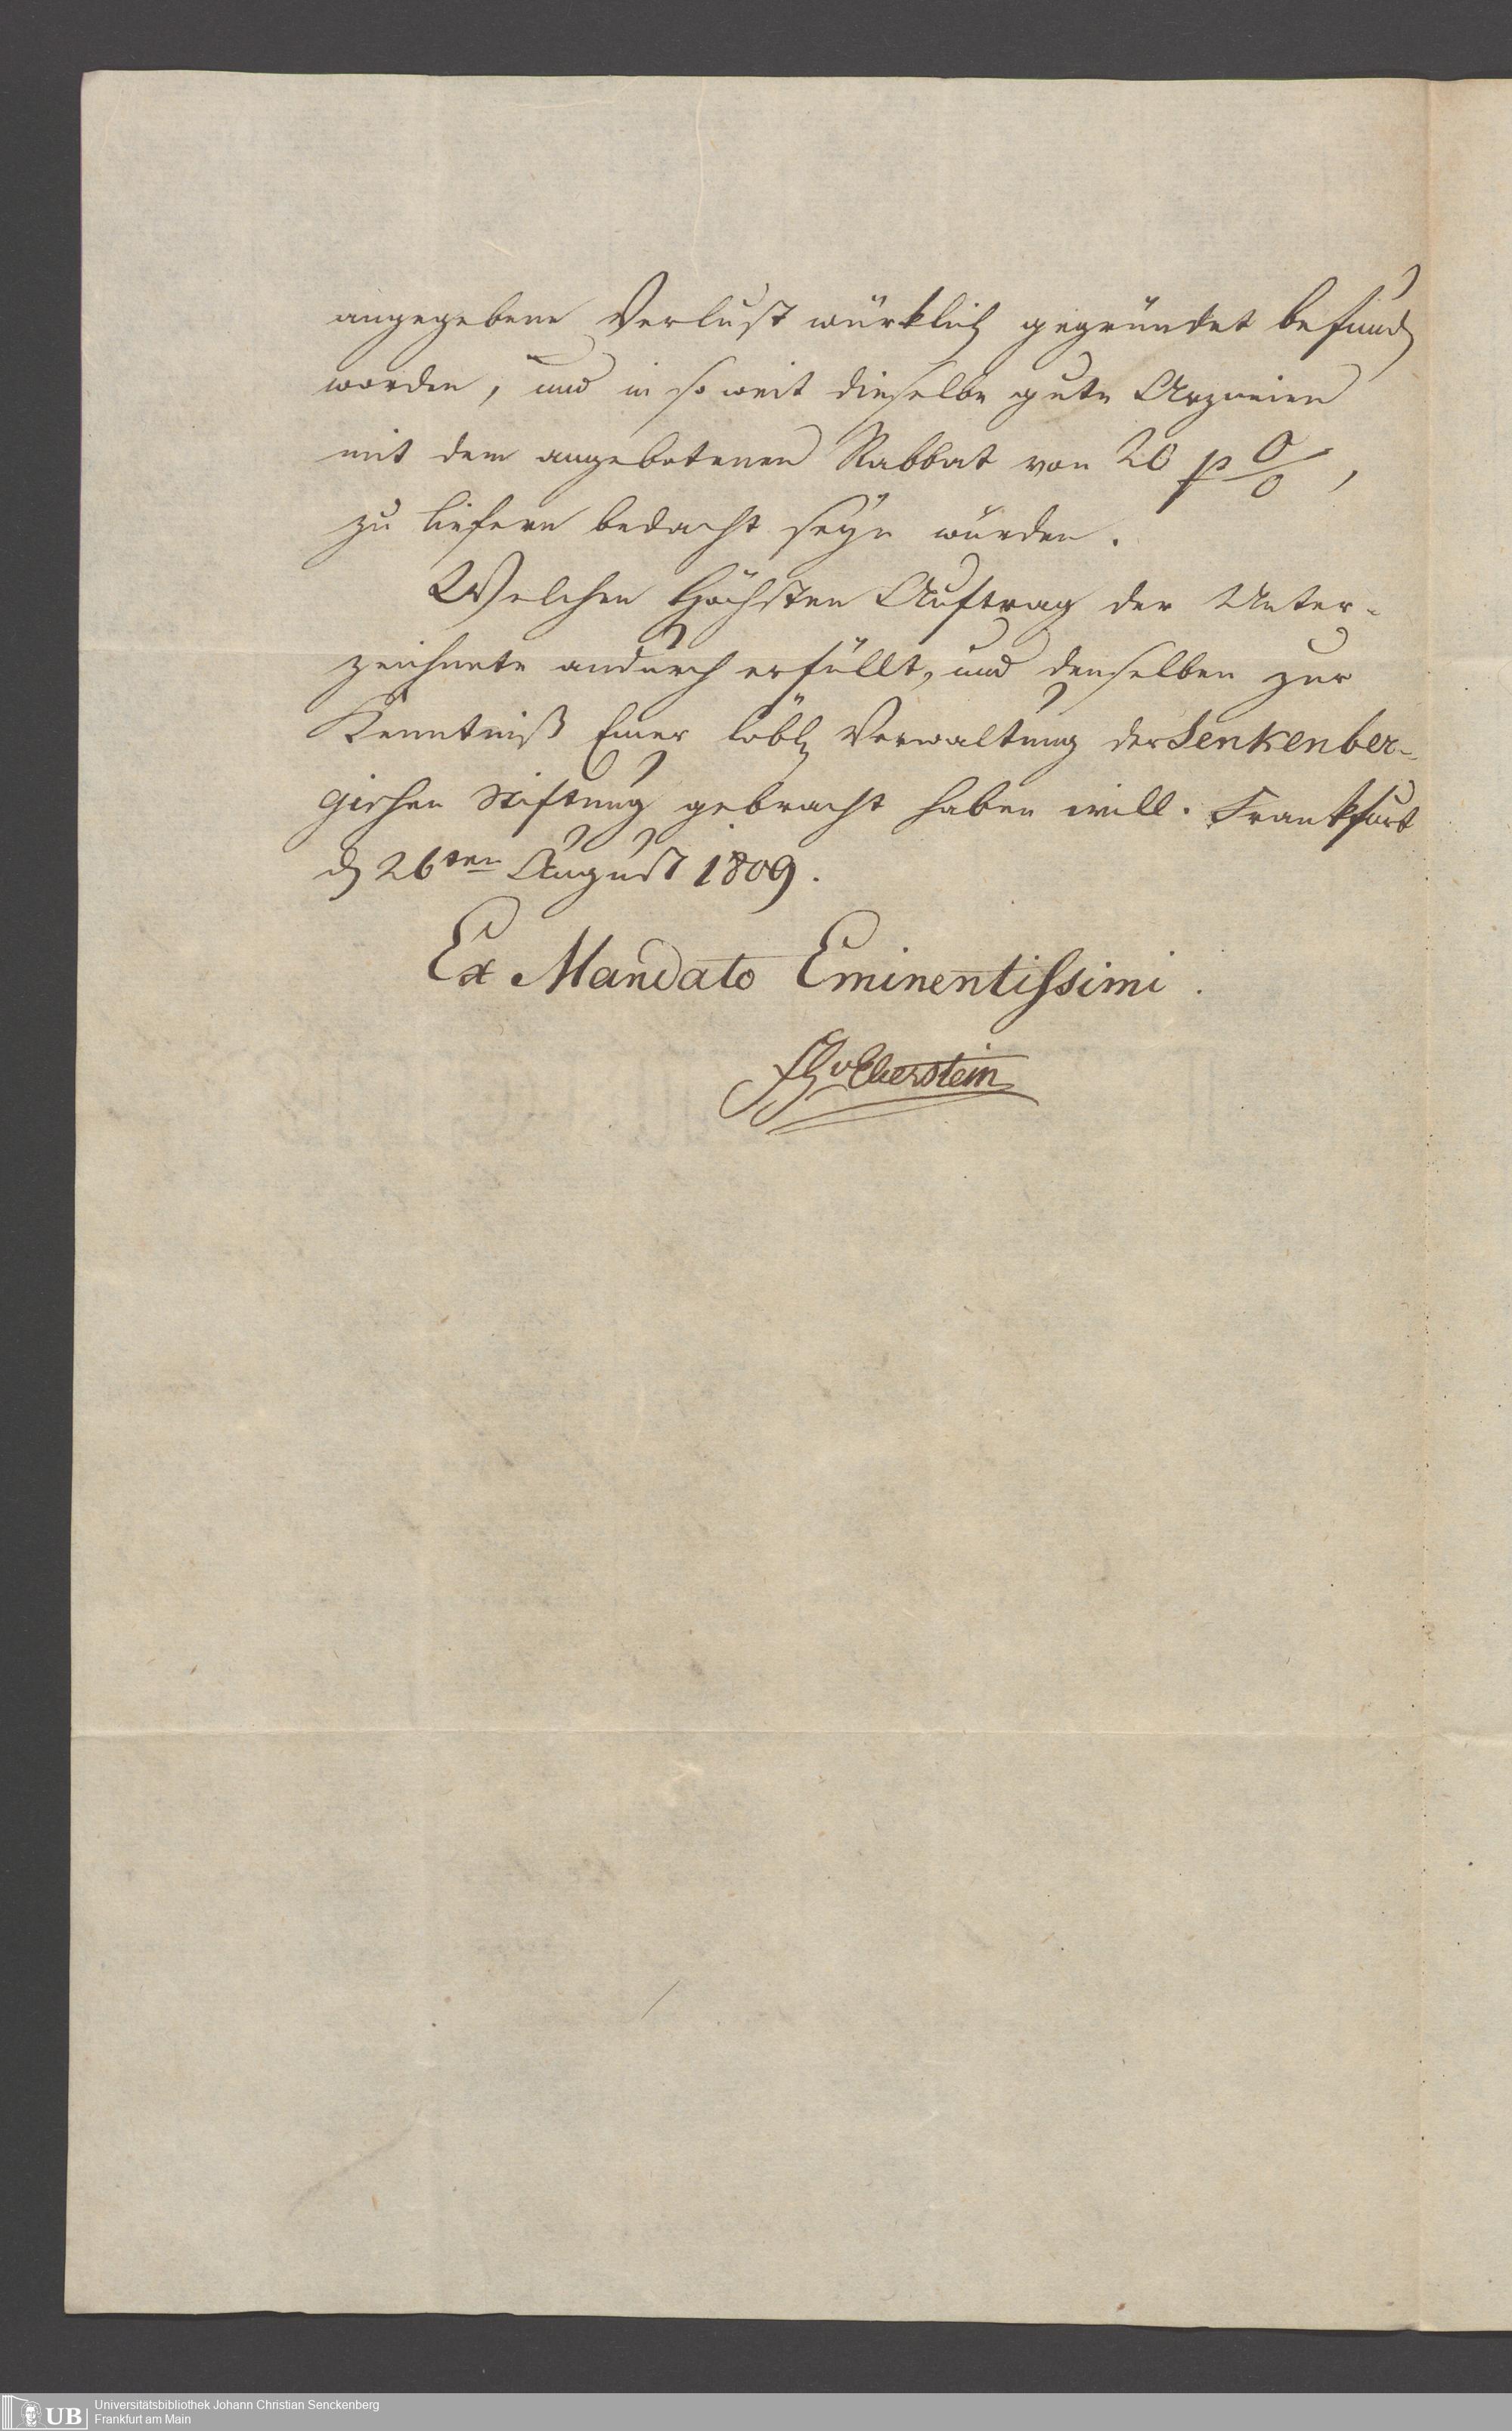 angegebene Verlust würklich gegründet befund
worden, und in so weit dieselbe gute Arzneien
mit dem angebotenen Rabbat von 20 p %,
zu liefern bedacht seyn würden.
Welchen Höchsten Auftrag der Unter-
zeichnete andurch erfüllt, und denselben zur
Kenntniß Einer löbl Verwaltung der Senkenber-
gischen Stiftung gebracht haben will. Frankfurt
d 26ten August 1809.
Ex Mandato Eminentissimi.
v Eberstein
Universitätsbibliothek Johann Christian Senckenberg
Frankfurt am Main
UB